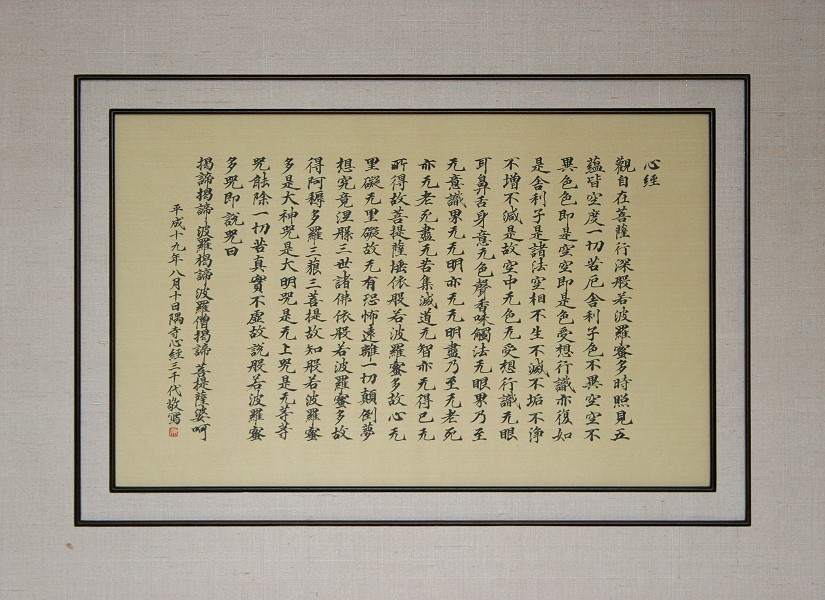 心經
觀自在菩薩行深般若波羅蜜多時照見五
蘊皆空度一切苦厄舍利子色不異空空不
異色色即是空空即是色受想行識亦復如
是舍利子是諸法空相不生不滅不垢不淨
不增不減是故空中无色无受想行識无眼
耳鼻舌身意无色聲香味觸法无眼界乃至
无意識界无无明亦无无明盡乃至无老死
亦无老死盡无苦集滅道无智亦无得已无
所得故菩提薩埵依般若波羅蜜多故心无
里礙无里礙故无有恐怖遠離一切顛倒夢
想究竟涅槃三世諸佛依般若波羅蜜多故
得阿耨多羅三藐三菩提故知般若波羅蜜
多是大神咒是大明咒是无上咒是无等等
咒能除一切苦真實不虛故說般若波羅蜜
多咒即說咒曰
揭諦揭諦波羅揭諦波羅僧揭諦菩提薩婆呵
平成十九年八月十日隅寺心經三千代敬寫